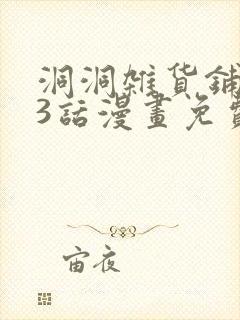 洞洞雑貨鋪
3話漫畫免費
宙夜